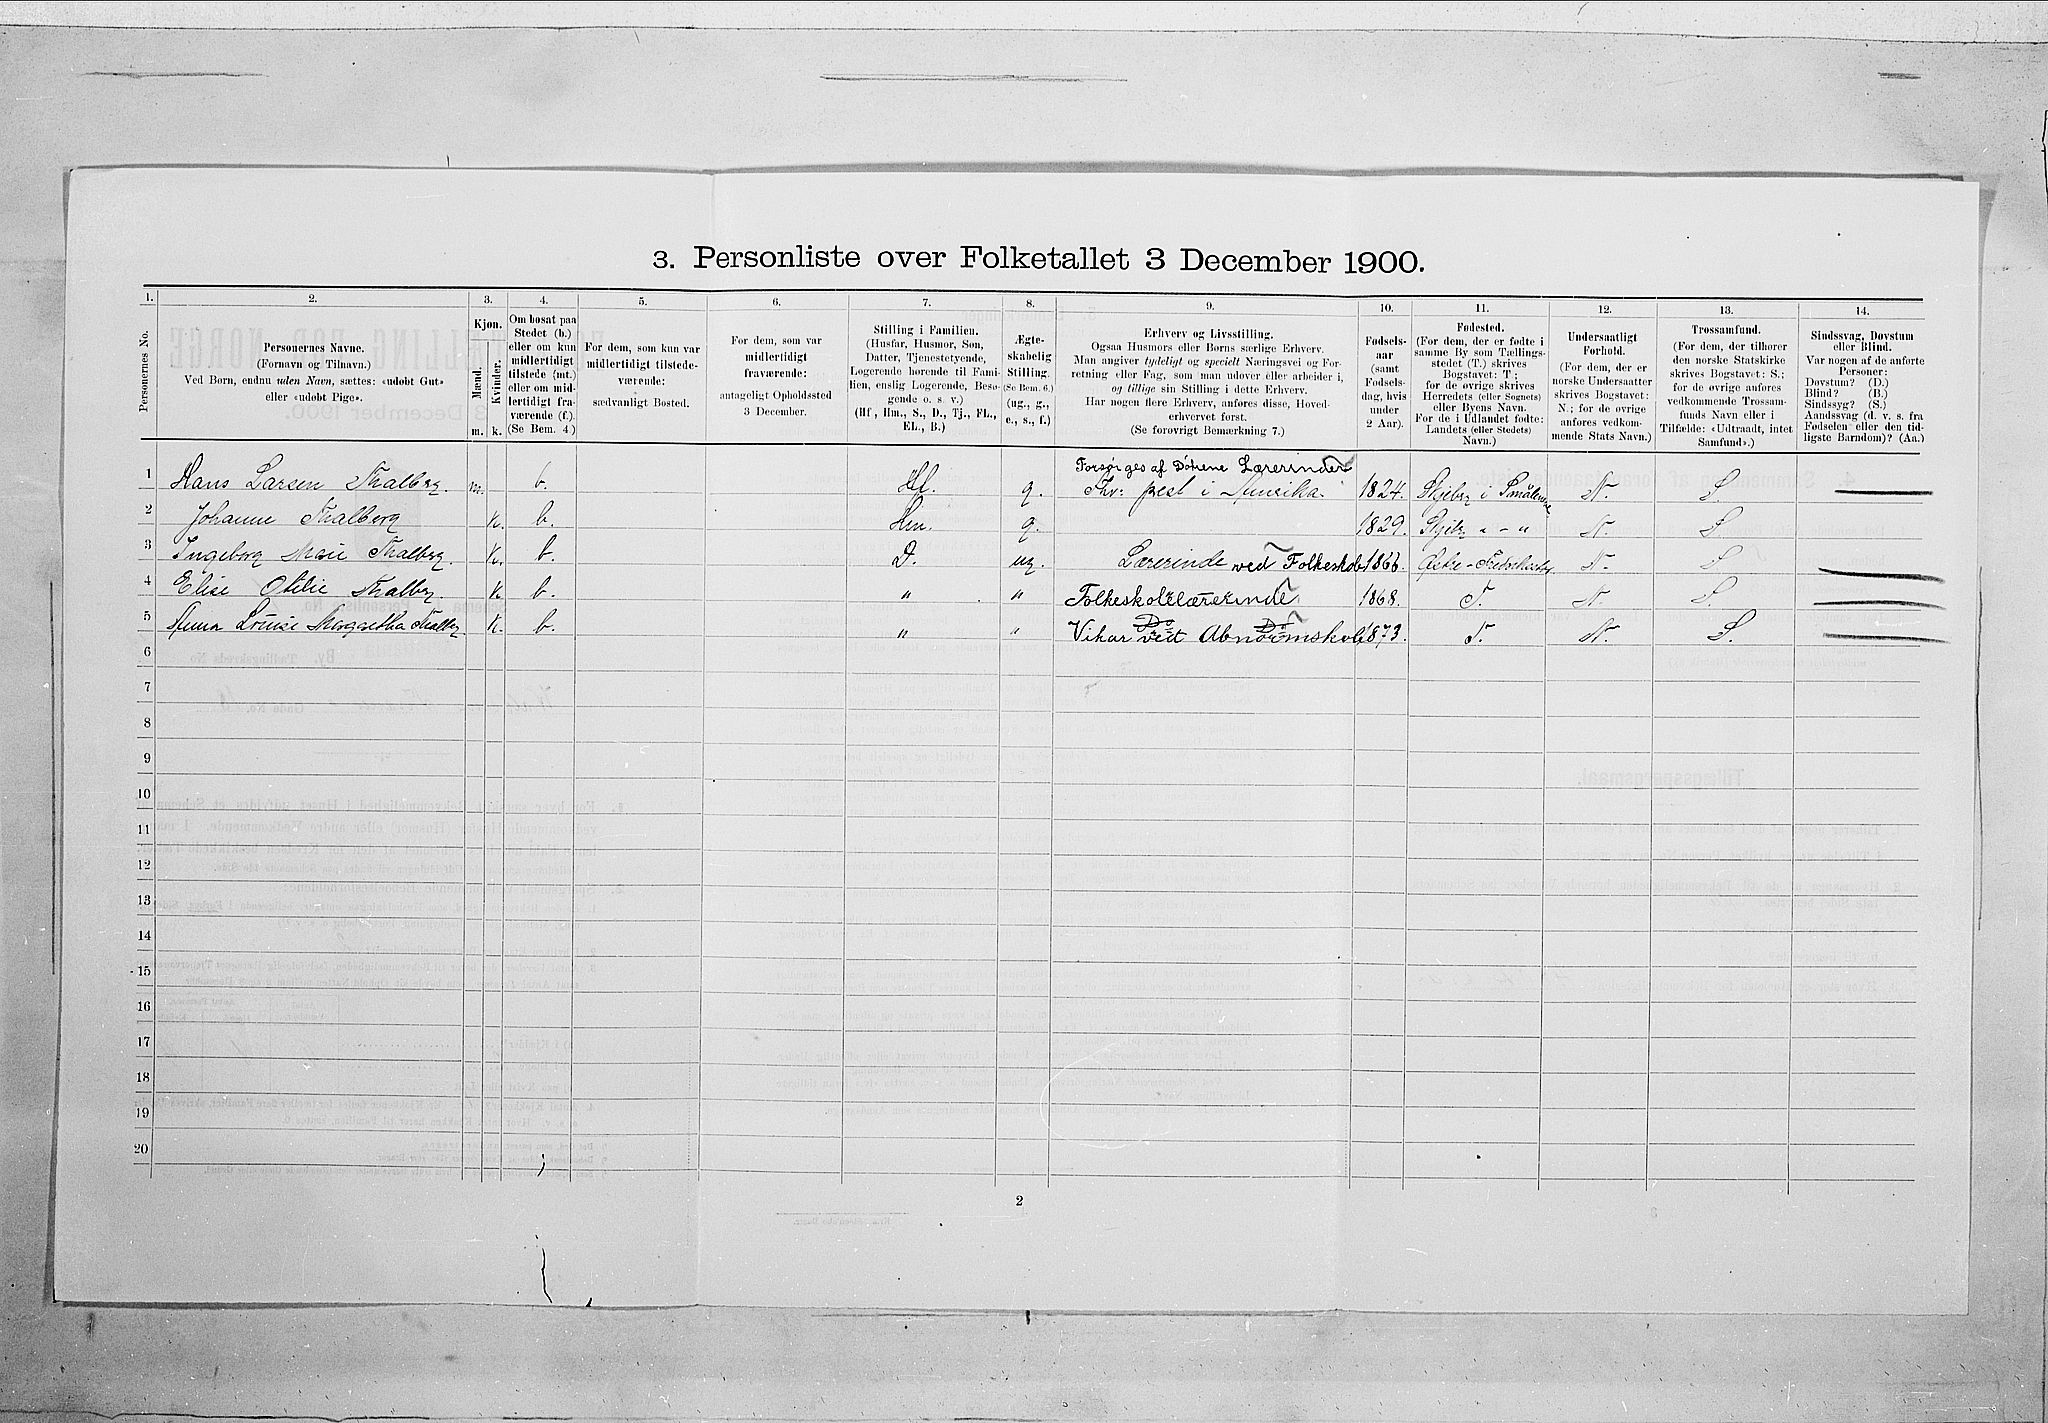 3. Personliste over Folketallet 3 December 1900.
1. 2. 3. 4. 5. 6. 7. 8. 9. 10. 11. 12. 13. 14.
Personernes No.
Personernes Navne.
(Fornavn og Tilnavn.)
Ved Børn, endnu uden Navn, sættes: «udøbt Gut»
eller «udøbt Pige».
Kjøn.
Mænd.
Kvinder.
m. k.
Om bosat paa
Stedet (b.)
eller om kun
midlertidigt
tilstede (mt.)
eller om mid-
lertidigt fra-
værende (f.).
(Se Bem. 4.)
For dem, som kun var
midlertidigt tilstede-
værende:
sædvanligt Bosted.
For dem, som var
midlertidigt
fraværende:
antageligt Opholdssted
3 December.
Stilling i Familien.
(Husfar, Husmor, Søn,
Datter, Tjenestetyende,
Logerende hørende til Fami-
lien, enslig Logerende, Besø-
gende o. s. v.)
(Hf., Hm., S., D., Tj., FL.,
EL., B.)
Ægte-
skabelig
Stilling.
(Se Bem. 6.)
(ug., g.,
e., s., f.)
Erhverv og Livsstilling.
Ogsaa Husmors eller Børns særlige Erhverv.
Man angiver tydeligt og specielt Næringsvei og For-
retning eller Fag, som man udøver eller arbeider i,
og tillige sin Stilling i dette Erhverv.
Har nogen flere Erhverv, anføres disse, Hoved-
erhvervet først.
(Se forøvrigt Bemærkning 7.)
Fødsels-
aar
(samt
Fødsels-
dag, hvis
under
2 Aar).
Fødested.
(For dem, der er fødte i
samme By som Tællings-
stedet (T.) skrives
Bogstavet: T.;
for de øvrige skrives
Herredets (eller Sognets)
eller Byens Navn.
For de i Udlandet fødte:
Landets (eller Stedets)
Navn.)
Undersaatligt
Forhold.
(For dem, der er
norske Undersaatter
skrives Bogstavet:
N.; for de øvrige
anføres vedkom-
mende Stats Navn.)
Trossamfund.
(For dem, der tilhører
den norske Statskirke
skrives Bogstavet: S.;
for de øvrige anføres
vedkommende Trossam-
funds Navn eller i
Tilfælde: «Udtraadt, intet
Samfund».)
Sindssvag, Døvstum
eller Blind.
Var nogen af de anførte
Personer:
Døvstum? (D.)
Blind? (B.)
Sindssyg? (S.)
Aandssvag (d. v. s. fra
Fødselen eller den tid-
ligste Barndom)? (Aa.)
Forsørges af Døtrene Lærerinder
1 Hans Larsen Thalberg. m. b. Hf. g. Thv: præst i Amerika. 1824. Skjeberg i Smålenene N. S.
2 Johanne Thalberg k. b. Hm. g. 1829. Skjeb. " - " N. S.
3 Ingeborg Marie Thalberg. k. b. D. ug. Lærerinde ved Folkeskole 1866. N. S.
4 Elise Otilie Thalberg. k b. " " Folkeskolelærerinde 1868. T. N. S.
5 Anna Louise Margaretha Thalberg k. b. " " Vikar ved Abnormskole 1873. T. N. S.
6
7
8
9
10
11
12
13
14
15
16
17
18
19
20
2